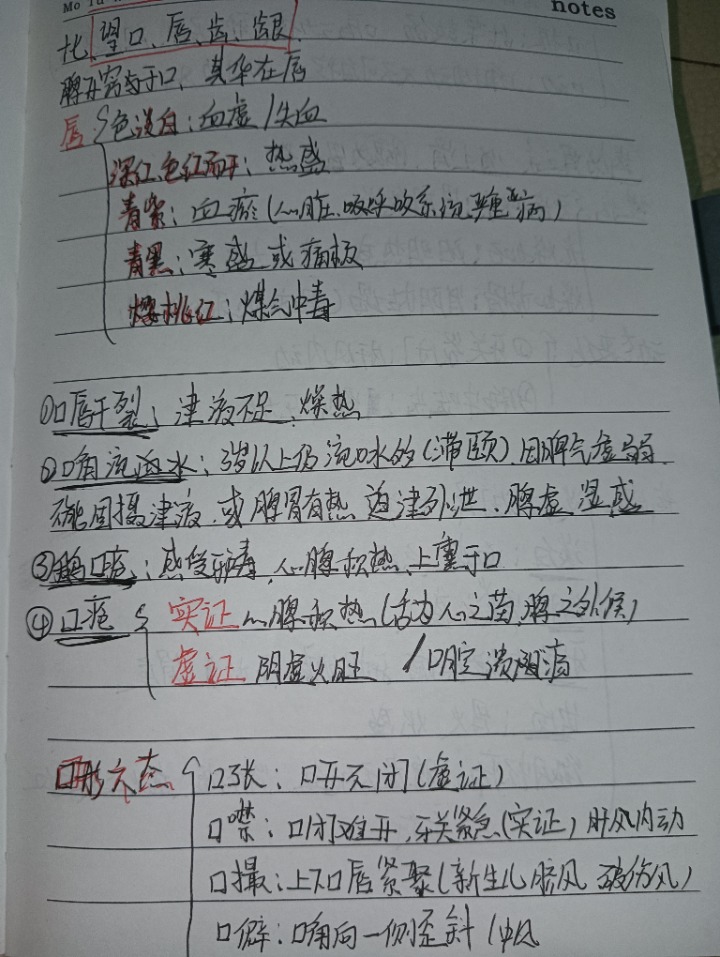 notes
七、望口、唇、齿、龈
脾开窍于口、其华在唇
唇 色淡白：血虚/失血
深红、色红而干：热盛
青紫：血瘀（心脏、呼吸系统严重病）
青黑：寒盛或痛极
樱桃红：煤气中毒
①口唇干裂：津液不足、燥热
②口角流涎水：3岁以上仍流口水的（滞颐）因脾气虚弱
不能固摄津液、或脾胃有热 迫津外泄、脾虚 湿盛
③鹅口疮：感受邪毒，心脾积热、上熏于口
④口疮 实证 心脾积热（舌为心之苗，脾之外候）
虚证 阴虚火旺 /口腔溃疡
口形六态 口张：口开不闭（虚证）
口噤：口闭难开，牙关紧急（实证）肝风内动
口撮：上下口唇紧聚（新生儿脐风 破伤风）
口僻：口角向一侧歪斜（中风